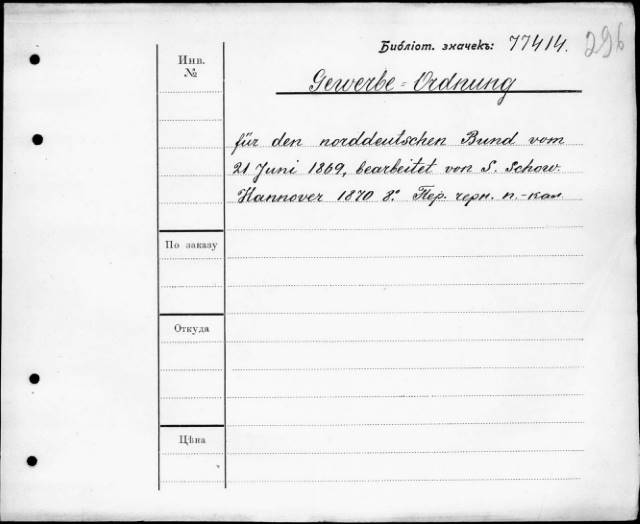 Библіот. значекъ: 77414. 296
Инв.
№
Gewerbe=Ordnung
für den norddeutschen Bund vom
21 Juni 1869, bearbeitet von S. Schow.
Hannover 1870 8.° Пер. черн. п.-кал.
По заказу
Откуда
Цѣна